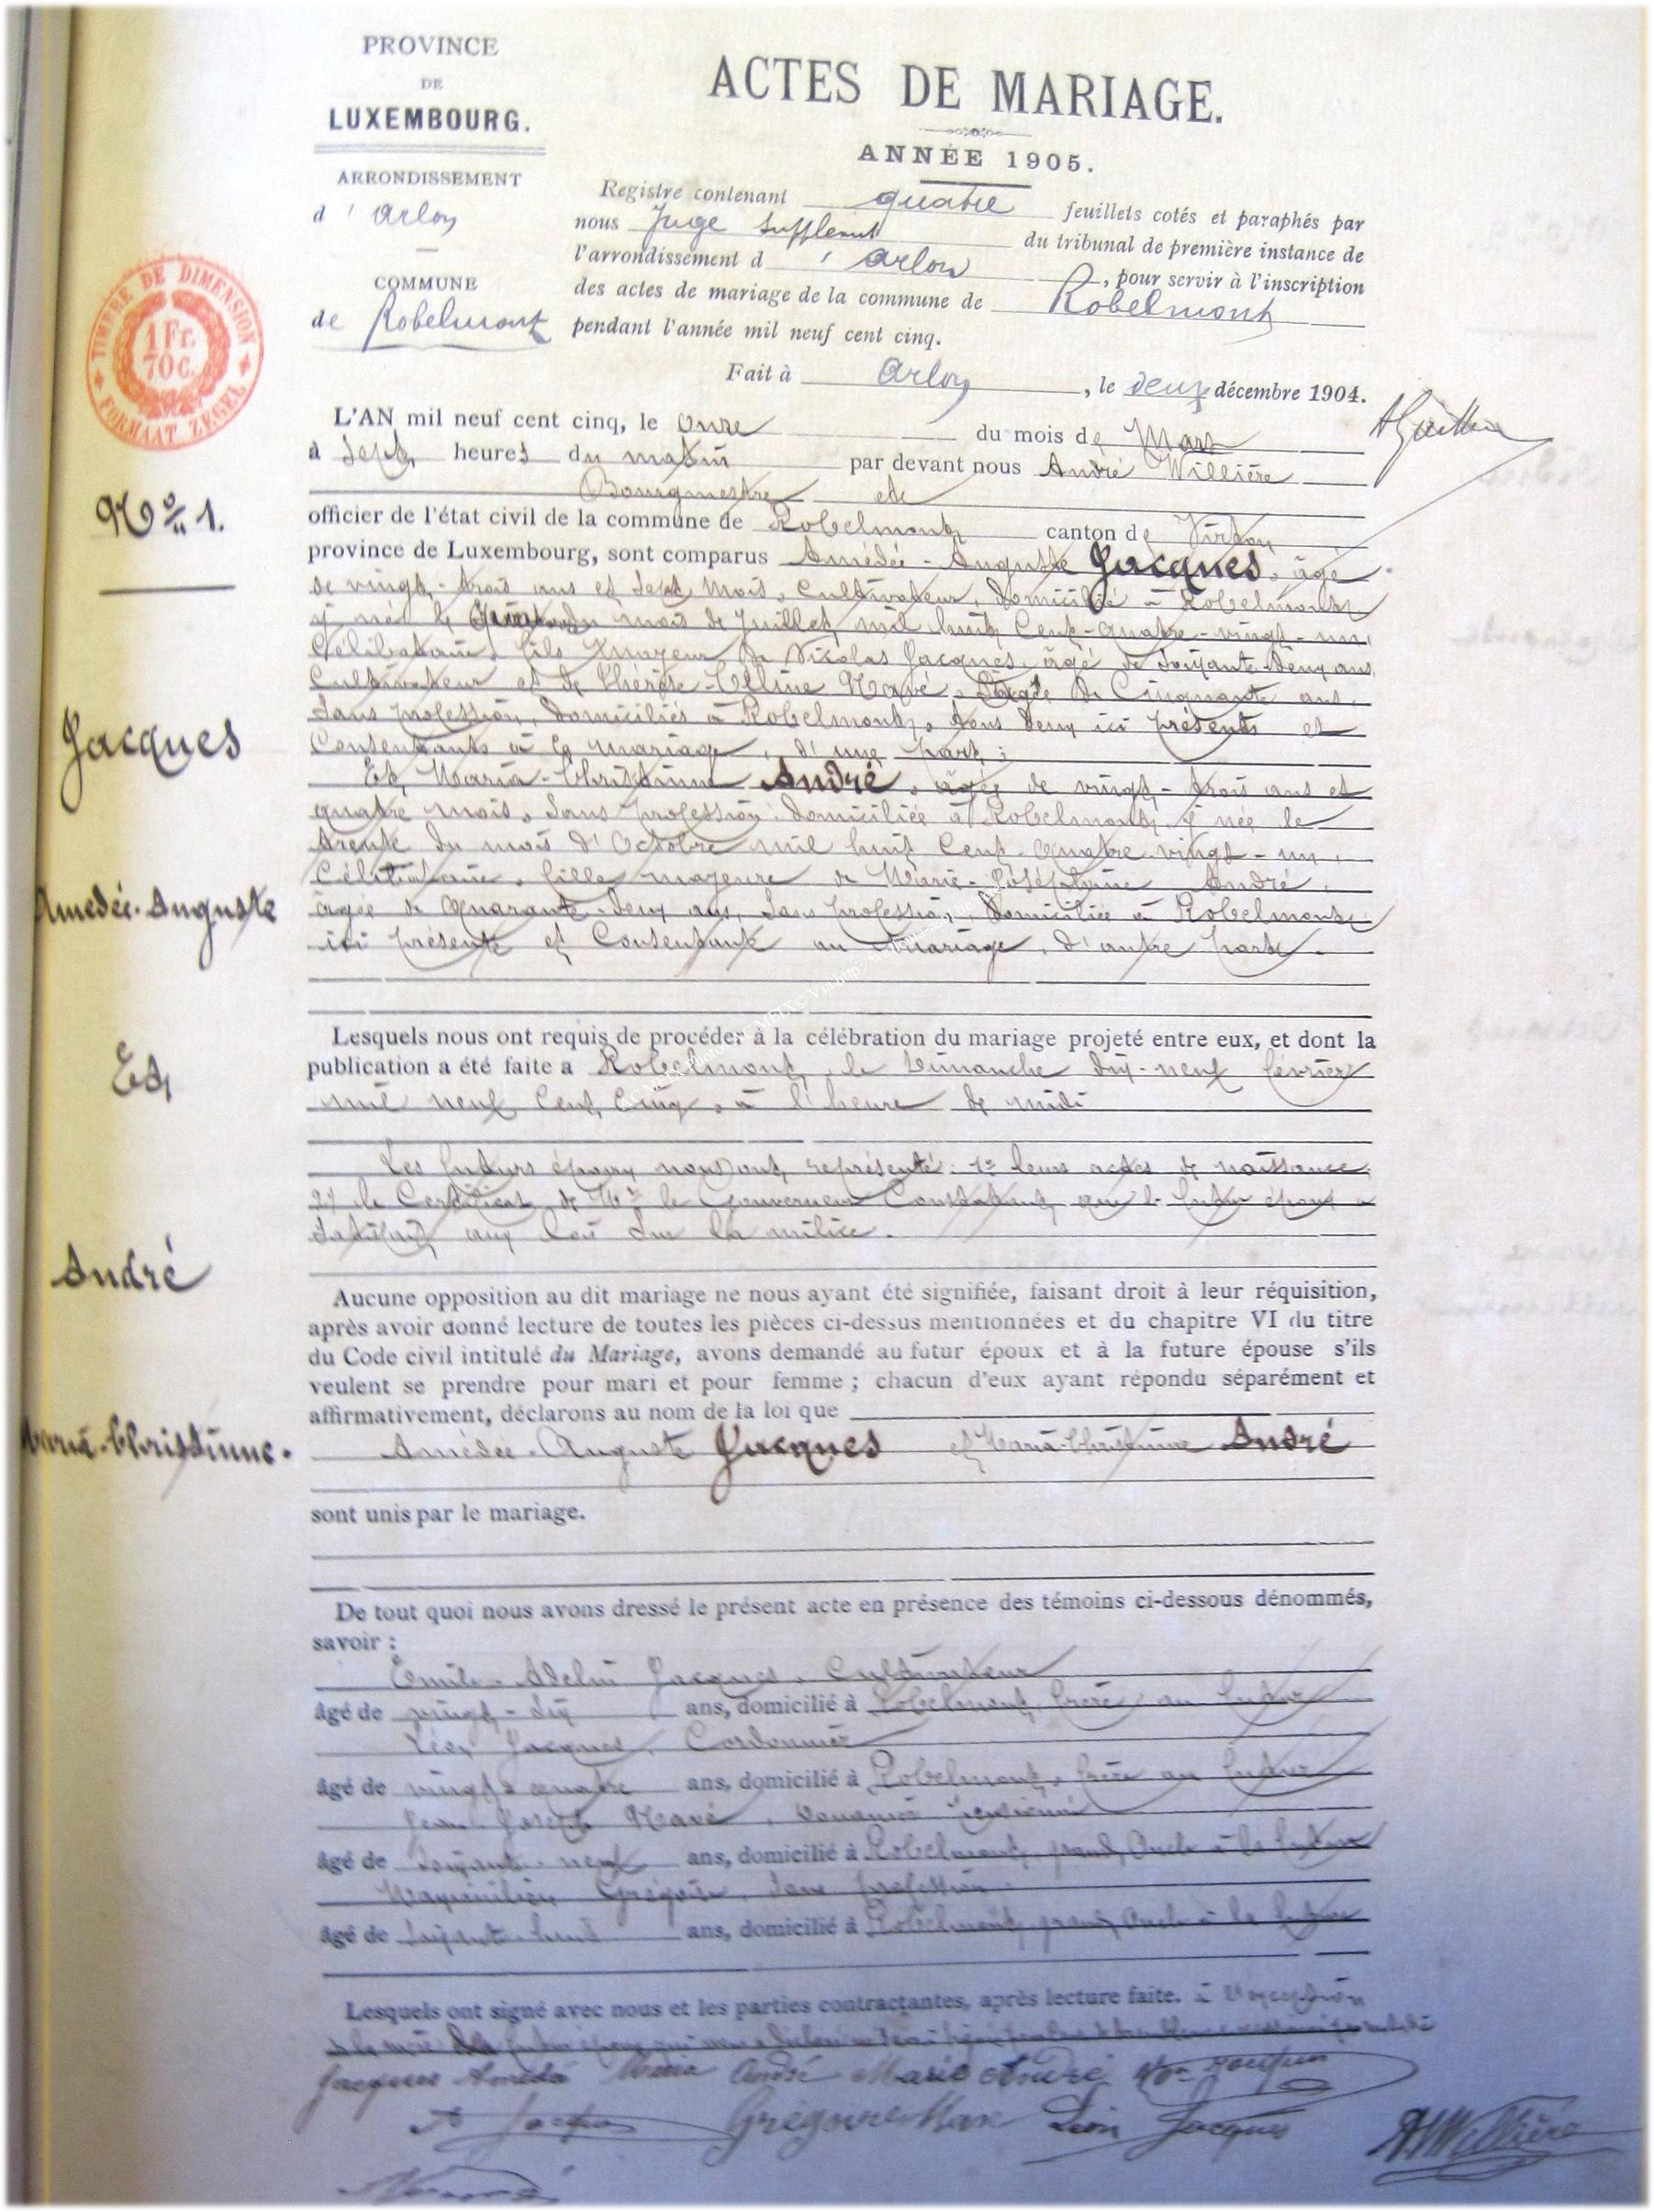 PROVINCE
DE
LUXEMBOURG.
ARRONDISSEMENT
d'Arlon
COMMUNE
de Robelmont
TIMBRE DE DIMENSION
1 Fr.
70 C.
FORMAAT ZEGEL
ACTES DE MARIAGE.
ANNÉE 1905.
Registre contenant quatre feuillets cotés et paraphés par
nous Juge suppleant du tribunal de première instance de
l'arrondissement d'Arlon, pour servir à l'inscription
des actes de mariage de la commune de Robelmont
pendant l'année mil neuf cent cinq.
Fait à Arlon, le deux décembre 1904.
L'AN mil neuf cent cinq, le onze du mois de Mars
à sept heures du matin par devant nous André Willière
Bourgmestre
officier de l'état civil de la commune de Robelmont canton de Virton
province de Luxembourg, sont comparus Amédée-Auguste Jacques, âgé
de vingt-trois ans et sept mois, cultivateur, domicilié à Robelmont
y né le du mois de Juillet mil huit cent-quatre-vingt-un,
Célibataire, fils majeur de Nicolas Jacques, âgé de soixante-deux ans,
Cultivateur et de Thérèse-Céline Havé, âgée de Cinquante ans,
sans profession, domiciliés à Robelmont, tous deux ici présents et
Consentants à ce mariage, d'une part;
Et, Maria-Christinne André, âgée de vingt-trois ans et
quatre mois, sans profession, domiciliée à Robelmont, y née le
trente du mois d'Octobre mil huit cent-quatre-vingt-un,
Célibataire, fille majeure de Marie-Joséphine André,
âgée de quarante-deux ans, sans profession, domiciliée à Robelmont
ici présente et Consentante au mariage, d'autre part.
N° 1.
Jacques
Amedée-Auguste
Et
André
Maria-Christinne.
Lesquels nous ont requis de procéder à la célébration du mariage projeté entre eux, et dont la
publication a été faite a Robelmont, le Dimanche dix-neuf février
mil neuf cent cinq, à l'heure de midi
Les futurs époux nous ont représenté: 1° leurs actes de naissance.
2° le Certificat de Mr le Gouverneur Constatant que le futur époux a
satisfait aux lois sur la milice.
Aucune opposition au dit mariage ne nous ayant été signifiée, faisant droit à leur réquisition,
après avoir donné lecture de toutes les pièces ci-dessus mentionnées et du chapitre VI du titre
du Code civil intitulé du Mariage, avons demandé au futur époux et à la future épouse s'ils
veulent se prendre pour mari et pour femme ; chacun d'eux ayant répondu séparément et
affirmativement, déclarons au nom de la loi que
Amédée-Auguste Jacques et Maria-Christinne André
sont unis par le mariage.
De tout quoi nous avons dressé le présent acte en présence des témoins ci-dessous dénommés,
savoir :
Emile-Adelin Jacques, Cultivateur
âgé de vingt-dix ans, domicilié à Robelmont, frère au futur
Léon Jacques, Cordonnier
âgé de vingt-quatre ans, domicilié à Robelmont, frère au futur
Jean-Joseph Havé, Douanier
âgé de soixante-neuf ans, domicilié à Robelmont, grand Oncle à la future
Maximilien Grégoire, sans profession
âgé de soixante-huit ans, domicilié à Robelmont, grand Oncle à la future
Lesquels ont signé avec nous et les parties contractantes, après lecture faite. à l'exception
Jacques Amédé Maria André Marie André
Jacques Grégoire Max Léon Jacques
A Willière